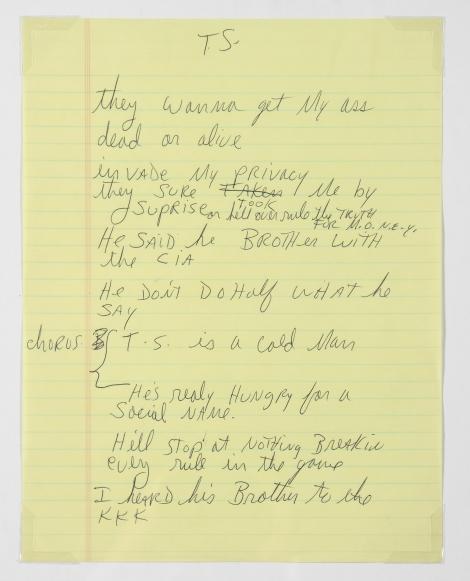 T.S.
they wanna get My ass
dead or alive
inVADE My PRIVACY
they SURE TAKen Me by
TOOK
SUPRISE or he'll overrule the TRUTH
FOR M.O.N.E.Y.
He SAID he BROTHER WITH
the CIA
He DON'T DO Half WHAT he
SAY
chorus T.S. is a cold Man
He's realy HUNGRY for a
Social NAMe.
He'll STOP at NOTHING BREAKin
every rule in the game
I heaRD his Brother to the
KKK